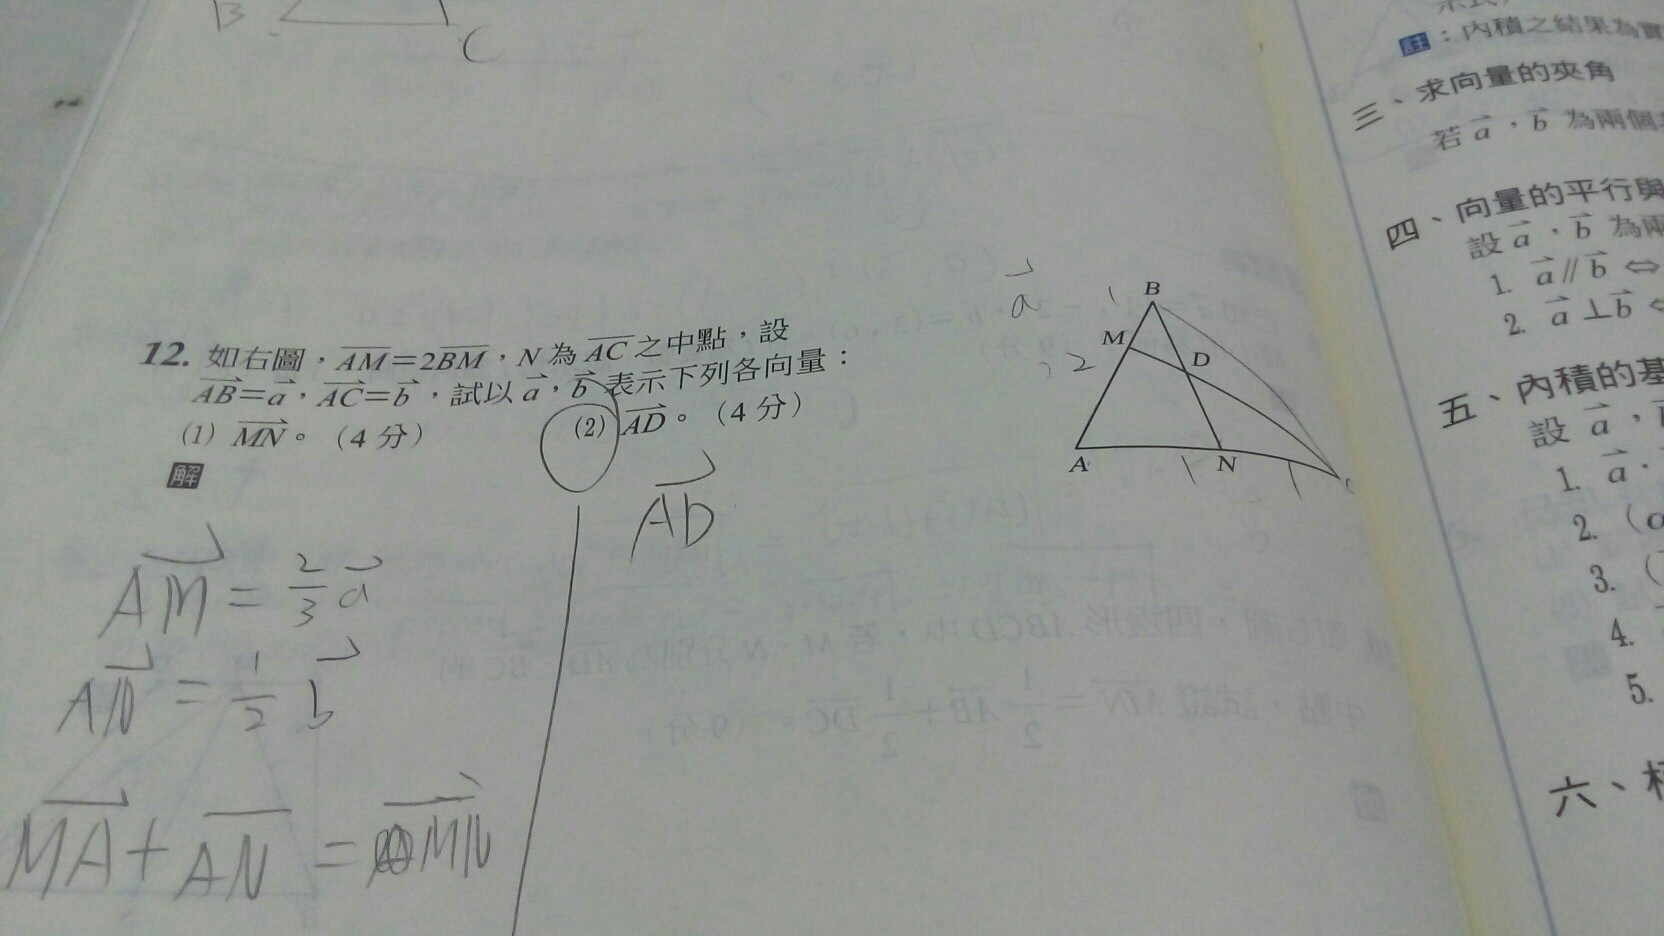 B
C
12. 如右圖，AM=2BM，N 為 AC 之中點，設
AB=a，AC=b，試以 a，b 表示下列各向量：
(1) MN。（4 分）
(2) AD。（4 分）
解
AM = 2/3 a
AN = 1/2 b
MA + AN = MN
AD
a
1
B
M
2
D
A
1
N
1
註：內積之結果為實
三、求向量的夾角
若 a，b 為兩個
四、向量的平行與
設 a，b 為兩
1. a∥b ⇔
2. a⊥b
五、內積的基
設 a，
1. a．
2. (
3. (
4.
5.
六、